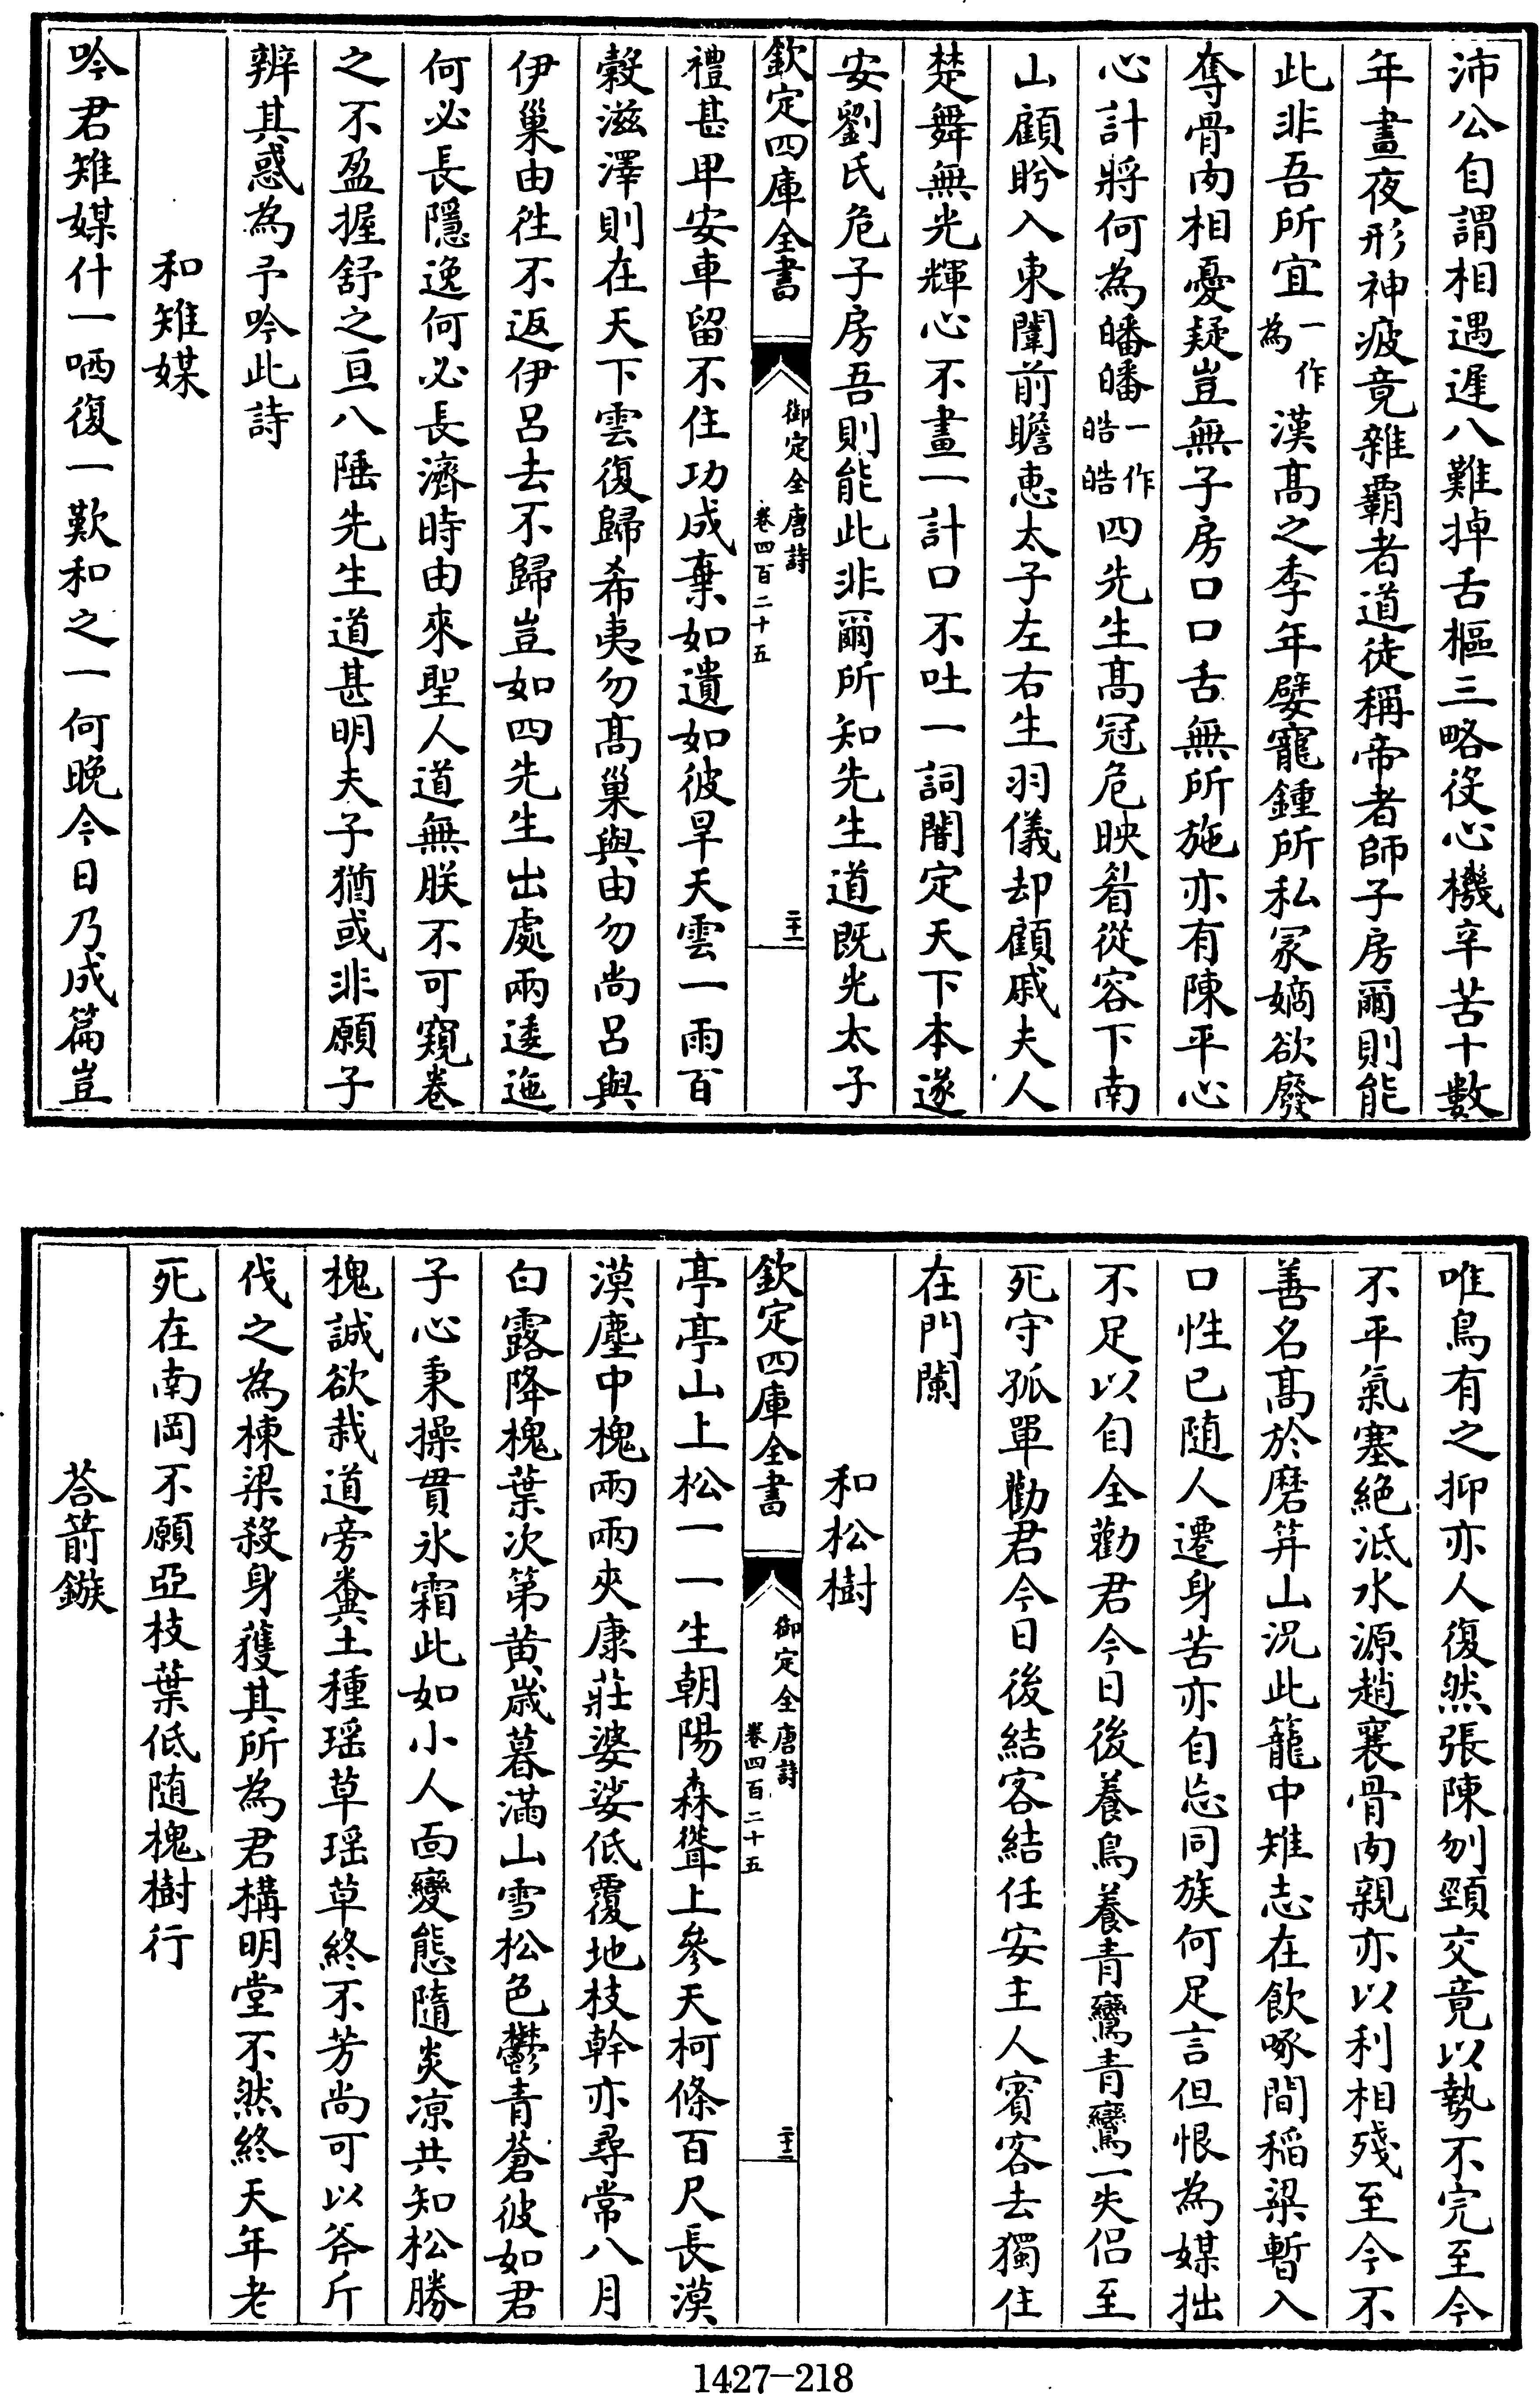 沛公自謂相遇遲八難掉舌樞三略役心機辛苦十數
年晝夜形神疲竟雜霸者道徒稱帝者師子房爾則能
此非吾所宜一作為漢髙之季年嬖寵鍾所私冢嫡欲廢
奪骨肉相憂疑豈無子房口口舌無所施亦有陳平心
心計將何為皤皤一作皓皓四先生髙冠危映睂從容下南
山顧盻入東闈前瞻惠太子左右生羽儀却顧戚夫人
楚舞無光輝心不畫一計口不吐一詞闇定天下本遂
安劉氏危子房吾則能此非爾所知先生道既光太子
欽定四庫全書
御定全唐詩
卷四百二十五
二十一
禮甚甲安車留不住功成棄如遺如彼旱天雲一雨百
穀滋澤則在天下雲復歸希夷勿髙巢與由勿尚呂與
伊巢由徃不返伊呂去不歸豈如四先生出處兩逶迤
何必長隱逸何必長濟時由來聖人道無朕不可窺卷
之不盈握舒之亘八陲先生道甚明夫子猶或非願子
辨其惑為予吟此詩
和雉媒
吟君雉媒什一哂復一歎和之一何晚今日乃成篇豈
唯鳥有之抑亦人復然張陳刎頸交竟以勢不完至今
不平氣塞絕泜水源趙襄骨肉親亦以利相殘至今不
善名髙於磨笄山況此籠中雉志在飲啄間稻粱暫入
口性已随人遷身苦亦自忘同族何足言但恨為媒拙
不足以自全勸君今日後養鳥養青鸞青鸞一失侣至
死守孤單勸君今日後結客結任安主人賓客去獨住
在門闌
和松樹
欽定四庫全書
御定全唐詩
卷四百二十五
二十二
亭亭山上松一一生朝陽森聳上參天柯條百尺長漠
漠塵中槐兩兩夾康莊婆娑低覆地枝幹亦尋常八月
白露降槐葉次第黄歲暮滿山雪松色鬱青蒼彼如君
子心秉操貫氷霜此如小人面變態隨炎凉共知松勝
槐誠欲栽道旁糞土種瑶草瑶草終不芳尚可以斧斤
伐之為棟梁殺身獲其所為君構明堂不然終天年老
死在南岡不願亞枝葉低随槐樹行
荅箭鏃
1427-218